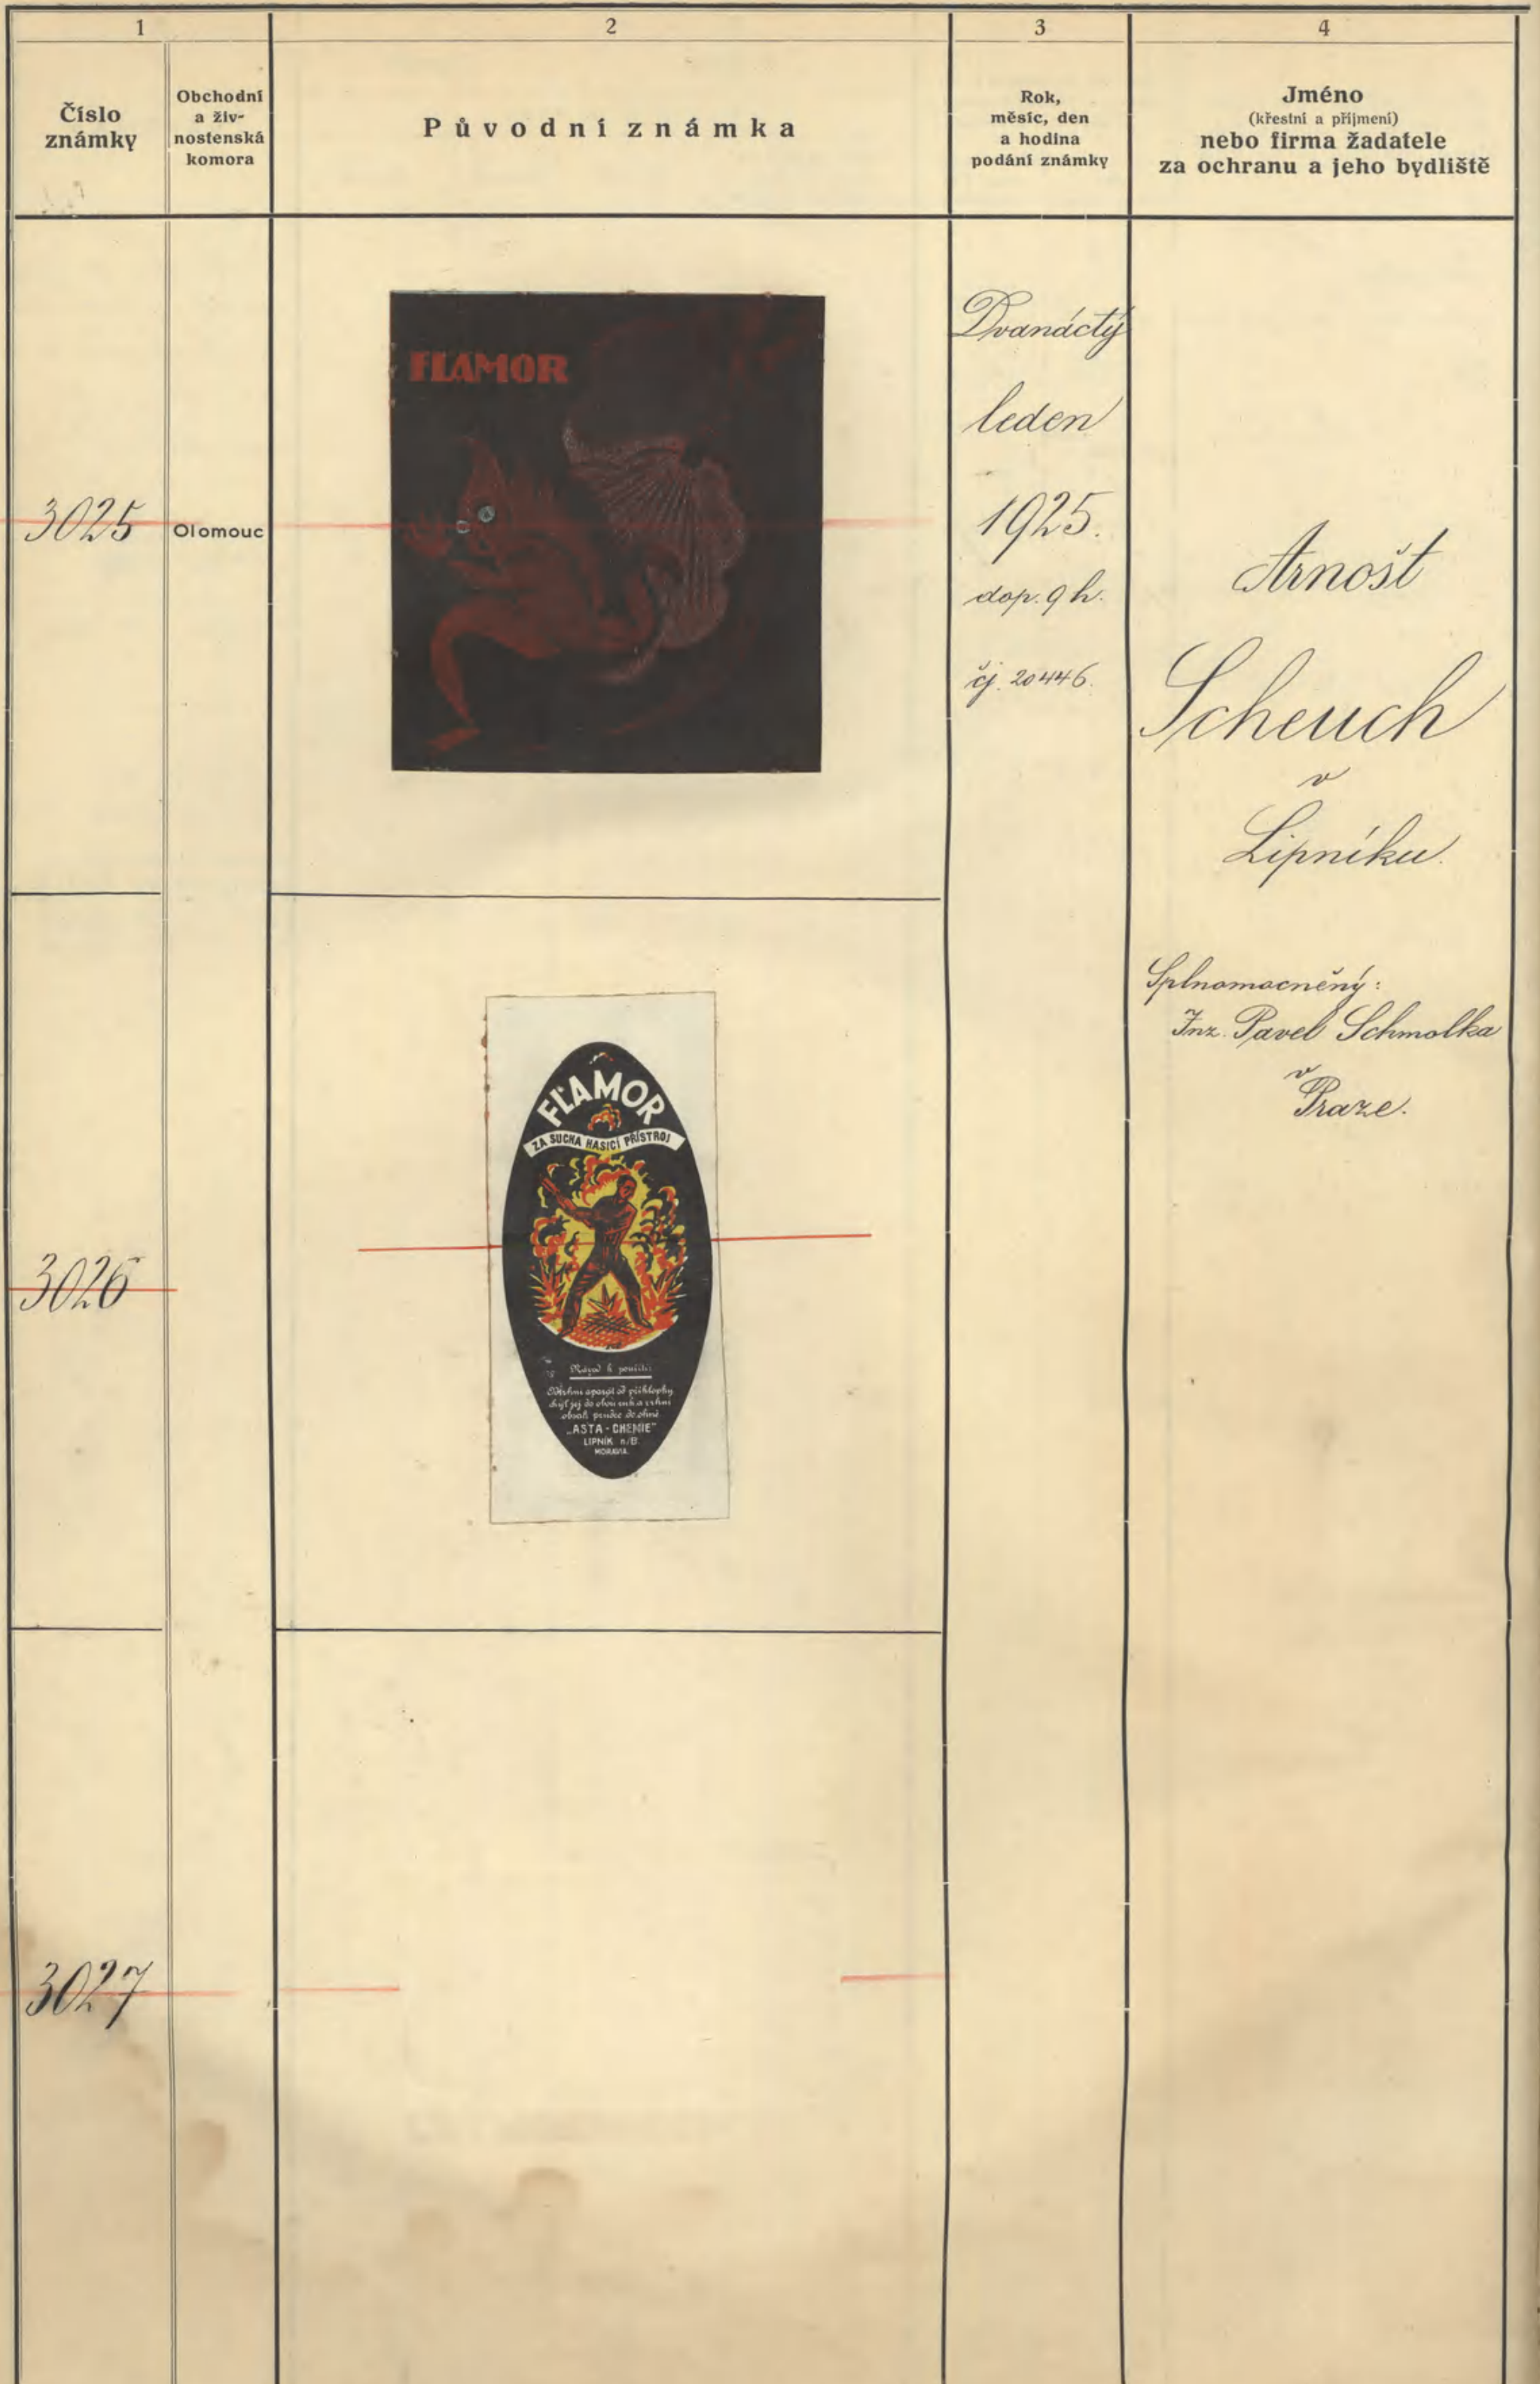 1
2
3
4
Číslo
známky
Obchodní
a živ-
nostenská
komora
Původní známka
Rok,
měsíc, den
a hodina
podání známky
Jméno
(křestní a příjmení)
nebo firma žadatele
za ochranu a jeho bydliště
3025
Olomouc
FLAMOR
Dvanáctý
leden
1925.
dop. 9 h.
čj. 20446.
Arnošt
Scheuch
v
Lipníku.
Splnomocněný:
Inz. Pavel Schmolka
v
Praze.
3026
FLAMOR
ZA SUCHA HASICÍ PŘÍSTROJ
Návod k použití:
aparát od příklopky
chyť jej do obou rukou a vrhni
obsah prudce do ohně
„ASTA-CHEMIE"
LIPNÍK n/B.
MORAVA.
3027